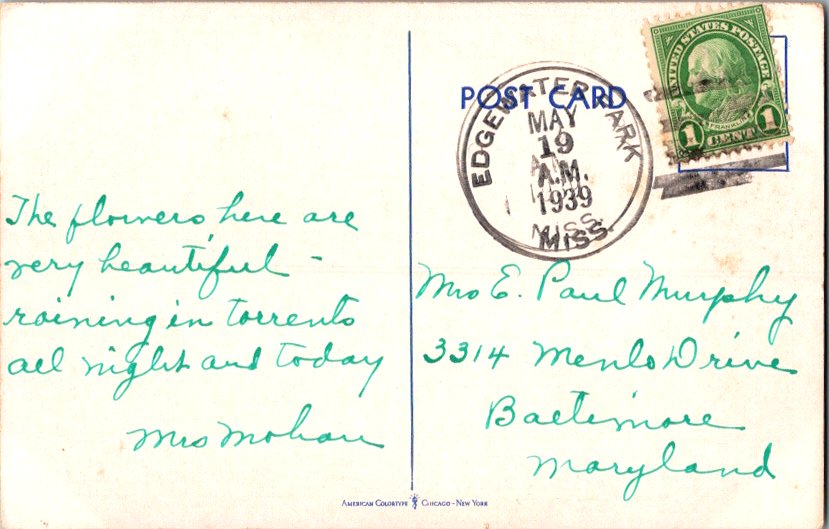 POST CARD
UNITED STATES POSTAGE
FRANKLIN
1 CENT 1
EDGEWATER PARK
MAY
19
A.M.
1939
MISS.
The flowers here are
very beautiful -
raining in torrents
all night and today
Mrs Mohan
Mrs E. Paul Murphy
3314 Menlo Drive
Baltimore
Maryland
AMERICAN COLORTYPE CHICAGO - NEW YORK